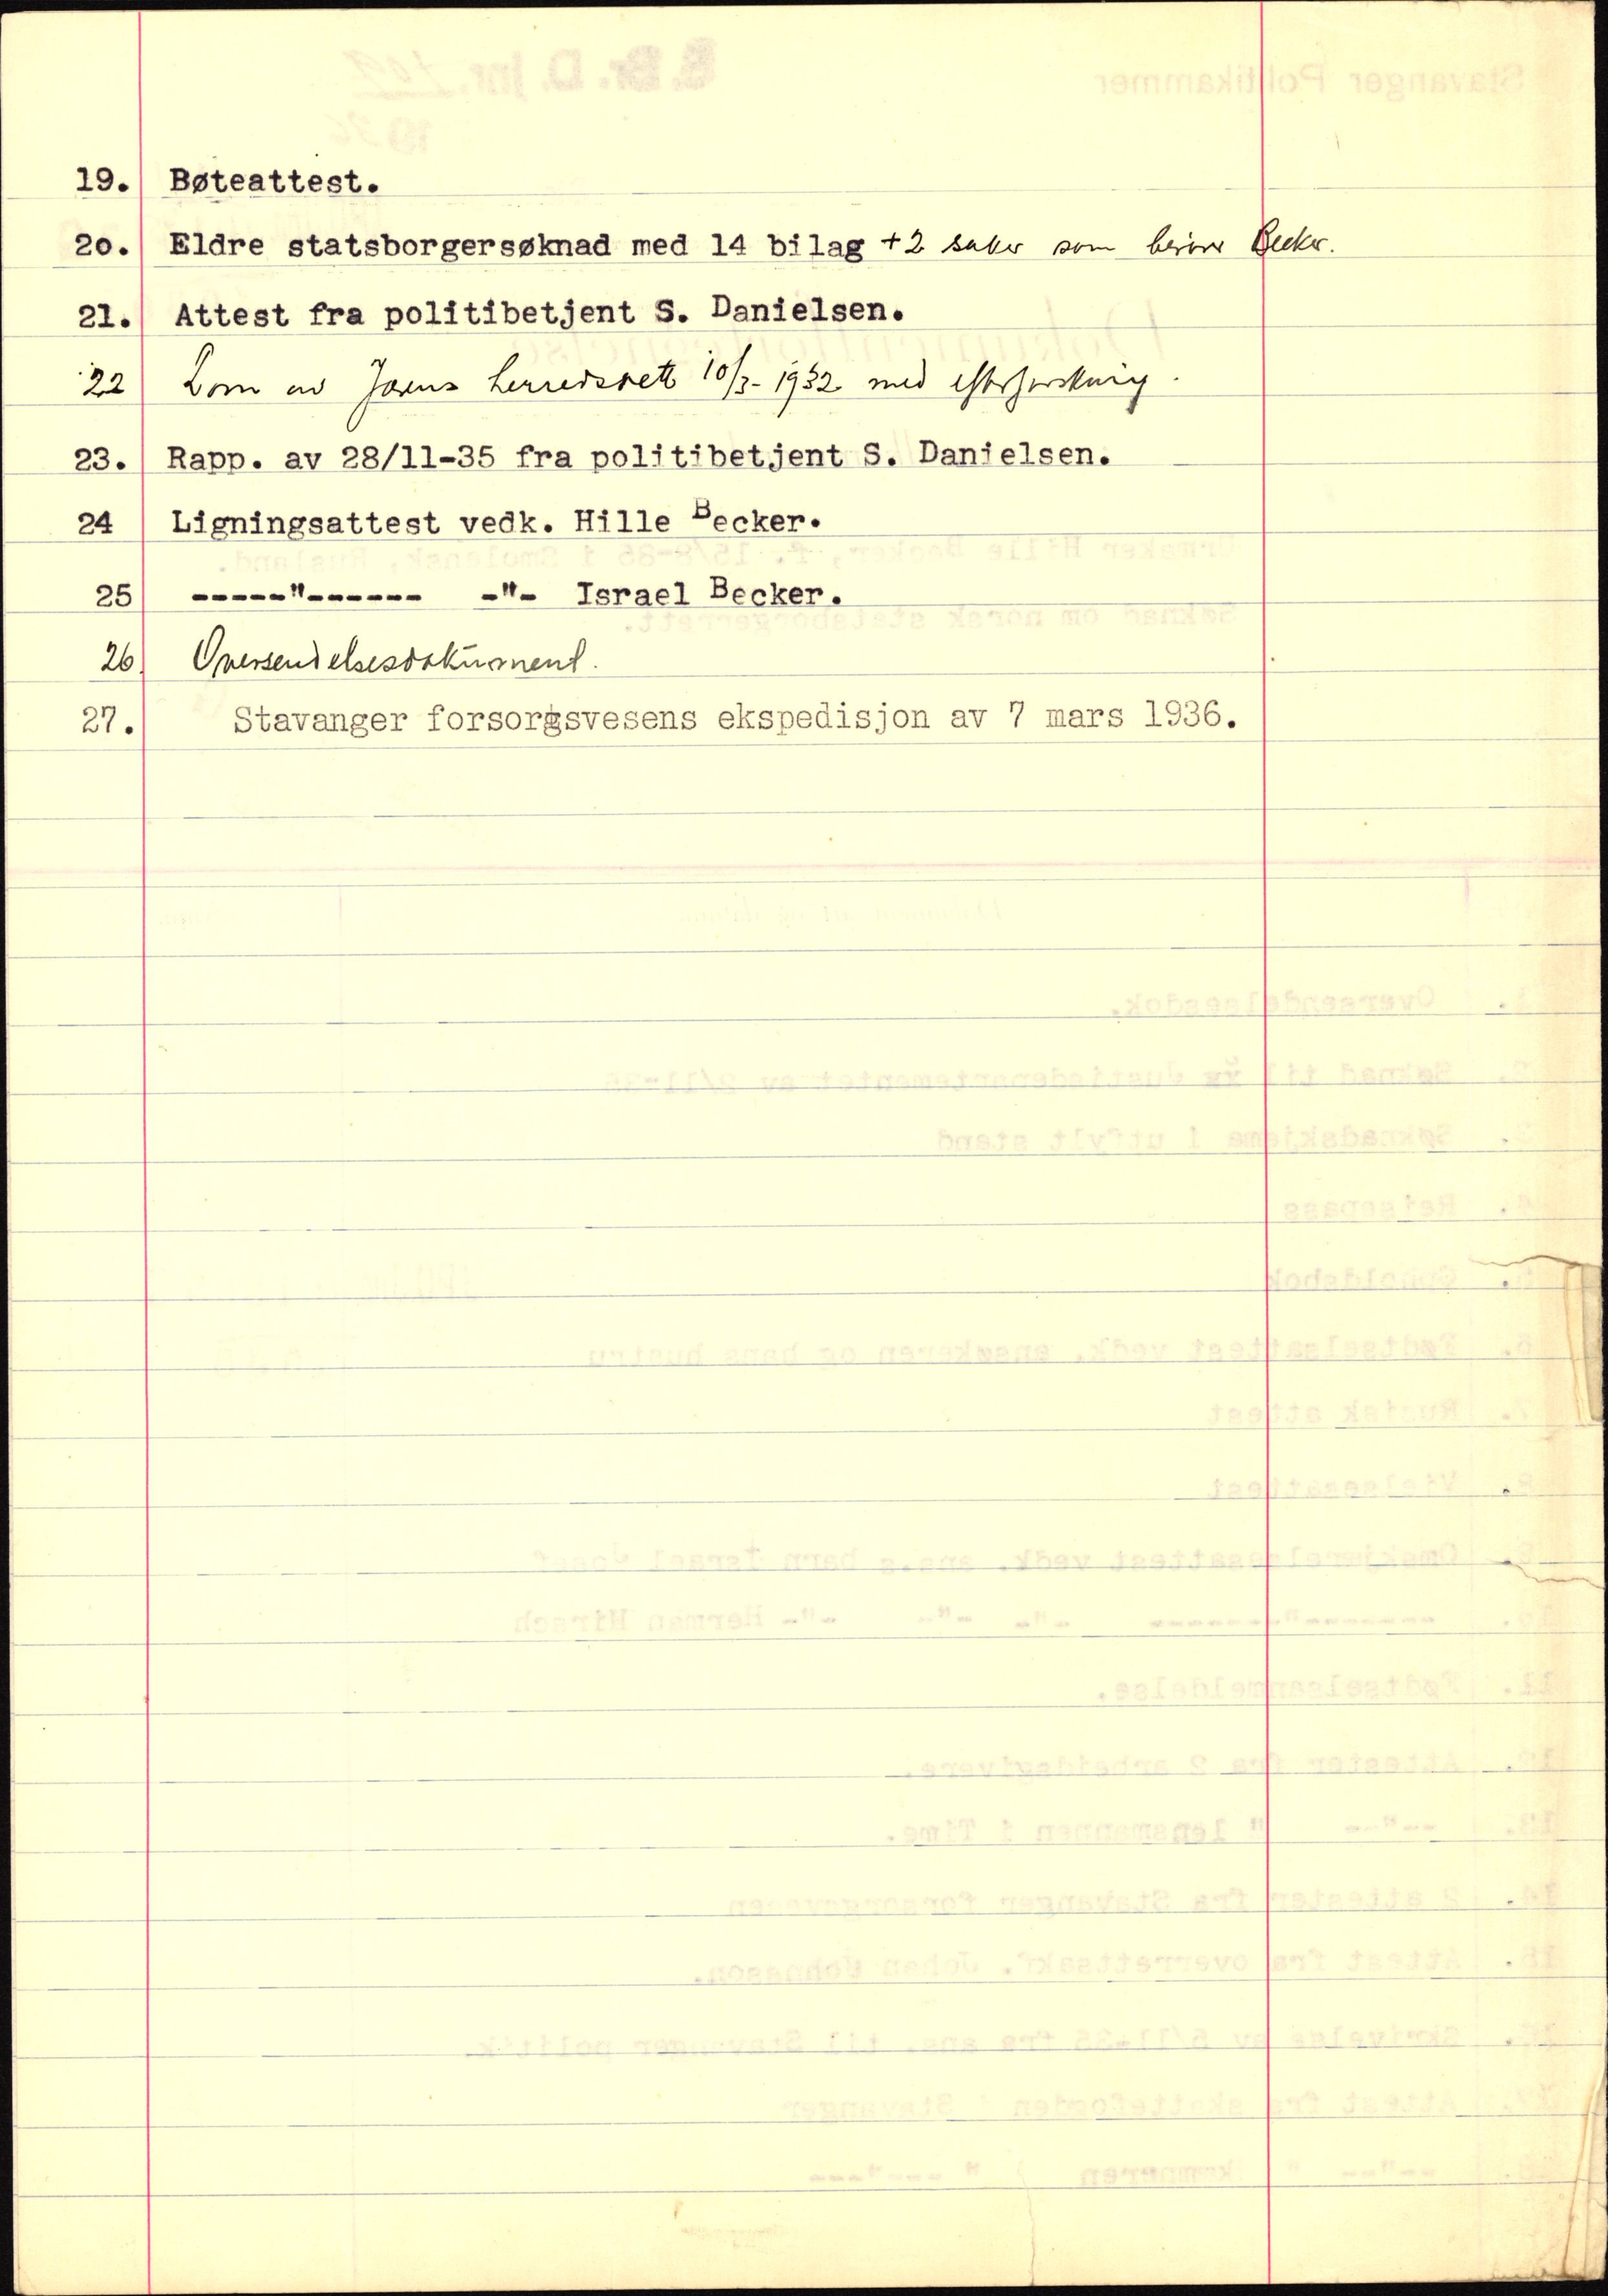 19. Bøteattest.
20. Eldre statsborgersøknad med 14 bilag +2 saker som berører Becker.
21. Attest fra politibetjent S. Danielsen.
22 Dom av Jæren herredsrett 10/3-1932 med efterforskning.
23. Rapp. av 28/11-35 fra politibetjent S. Danielsen.
24 Ligningsattest vedk. Hille Becker.
25 -----"------ -"- Israel Becker.
26. Oversendelsesdokument.
27. Stavanger forsorgsvesens ekspedisjon av 7 mars 1936.